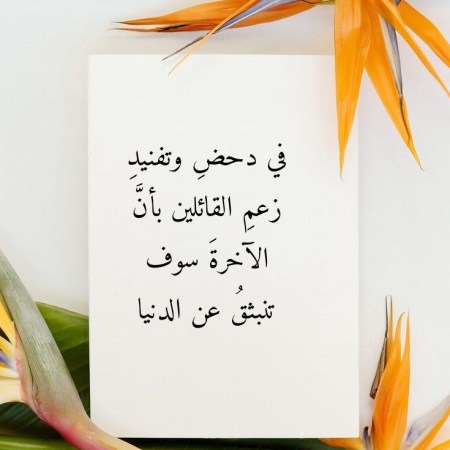 في دحضِ وتفنيدِ
زعمِ القائلين بأنَّ
الآخرةَ سوف
تنبثقُ عن الدنيا